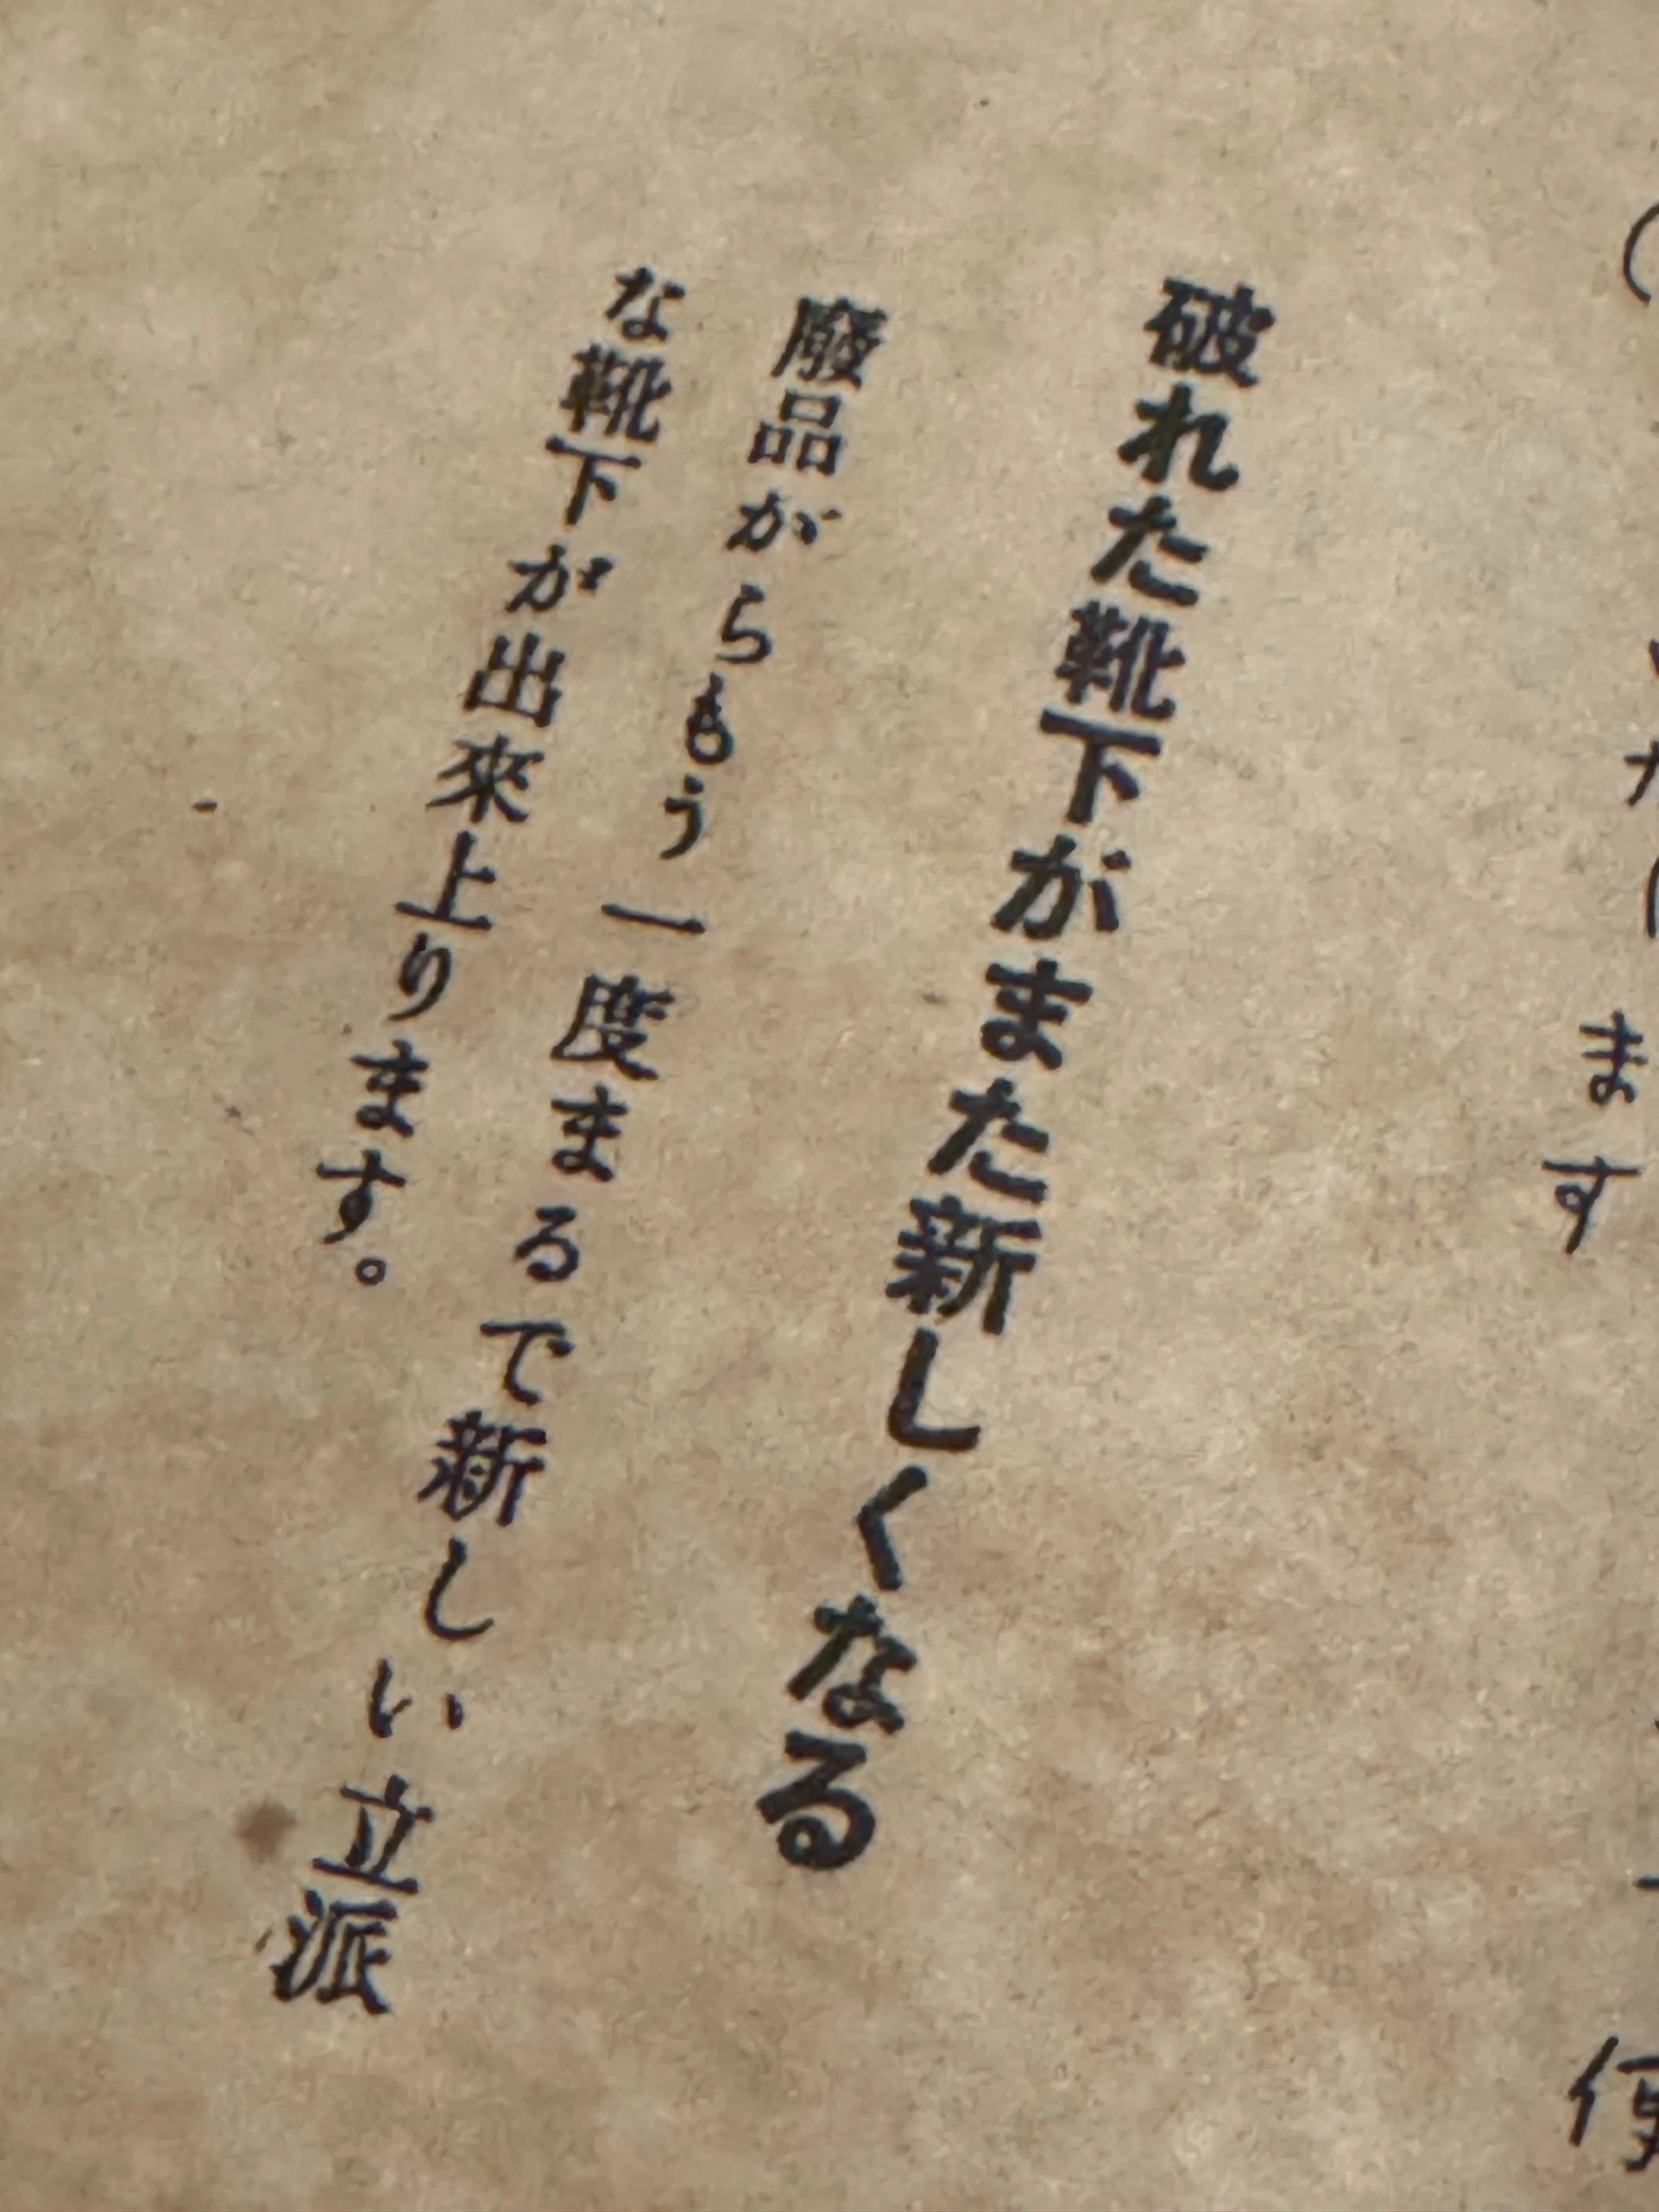 ます
便
破れた靴下がまた新しくなる
廢品がらもう一度まるで新しい立派
な靴下が出來上ります。